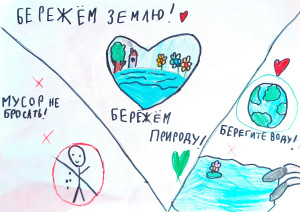 БЕРЕЖЁМ ЗЕМЛЮ!
МУСОР НЕ
БРОСАТЬ!
БЕРЕЖЁМ
ПРИРОДУ!
БЕРЕГИТЕ ВОДУ!